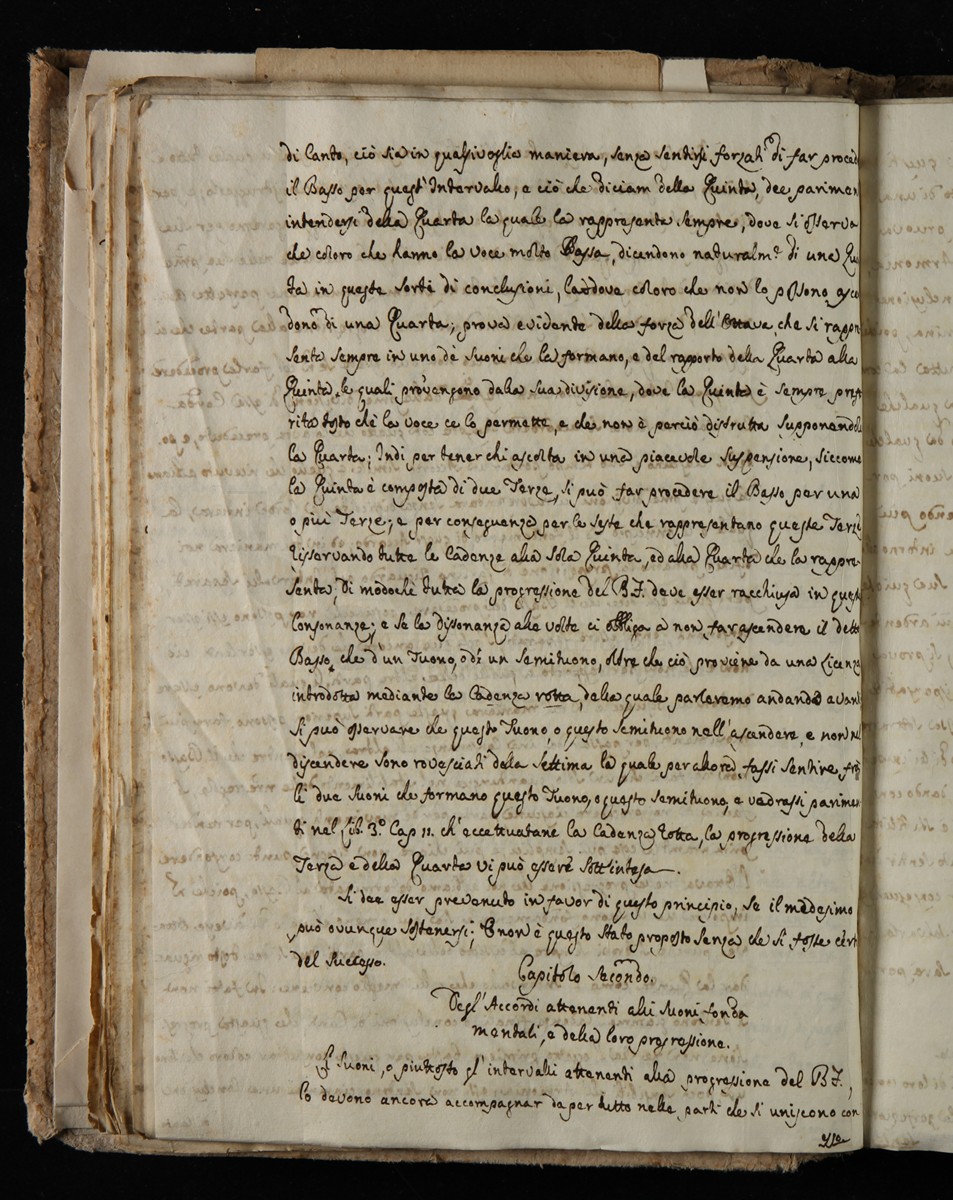 di Canto, ciò sia in qualsivoglia maniera, senza sentirsi forzati di far proced
il Basso per quest'Intervallo, e ciò che diciam della Quinta, dee parimen
intendersi della Quarta la quale la rappresenta sempre, dove si osserva
che coloro che hanno la voce molto Bassa, discendono naturalm.e di una Qui
ta in queste sorti di conclusioni, laddove coloro che non lo possono asce
dono di una Quarta; prova evidente della forza dell'Ottava che si rappre
senta sempre in uno de suoni che la formano, e del rapporto della Quarta alla
Quinta, le quali provengono dalla sua divisione, dove la Quinta è sempre prefe
rita tosto chè la voce ce lo permette, e che non è perciò distrutta supponendole
la Quarta; Indi per tener chi ascolta in una piacevole suspensione, siccome
la Quinta è composta di due Terze, si può far procedere il Basso per una
o più Terze; e per conseguenza per le Seste che rappresentano queste Terze
risservando tutte le Cadenze alla sola Quinta, ed alla Quarta che la rappre
senta, Di modochè tutta la progressione del B.F. deve esser racchiusa in queste
Consonanze; e se la dissonanza alle volte ci obbliga a non far ascendere il detto
Basso, che d'un Tuono, o di un semituono, oltre che ciò proviene da una Licenza
introdotta mediante la Cadenza rotta, della quale parleremo andando avanti
Si può osservare che questo Tuono, o questo semituono nell'ascendere, e non nel
discendere sono rovesciati dalla Settima la quale per allora fassi sentire frà
li due suoni che formano questo Tuono, o questo semituono, e vedrassi parimen
ti nel Lib. 3.o Cap 11. ch'eccettuatane la Cadenza rotta, la progressione della
Terza e della Quarta vi può essere sott'intesa.
Si dee esser prevenuto in favor di questo principio, se il medesimo
può ovunque sostenersi; E non è questo stato proposto senza che si fosse certi
del successo.
Capitolo Secondo.
Degl'Accordi attenenti alli suoni fonda
mentali, e della loro progressione.
I suoni, o piuttosto gl'intervalli attenenti alla progressione del B.F.,
lo devono ancora accompagnar da per tutto nelle parti che si uniscono con